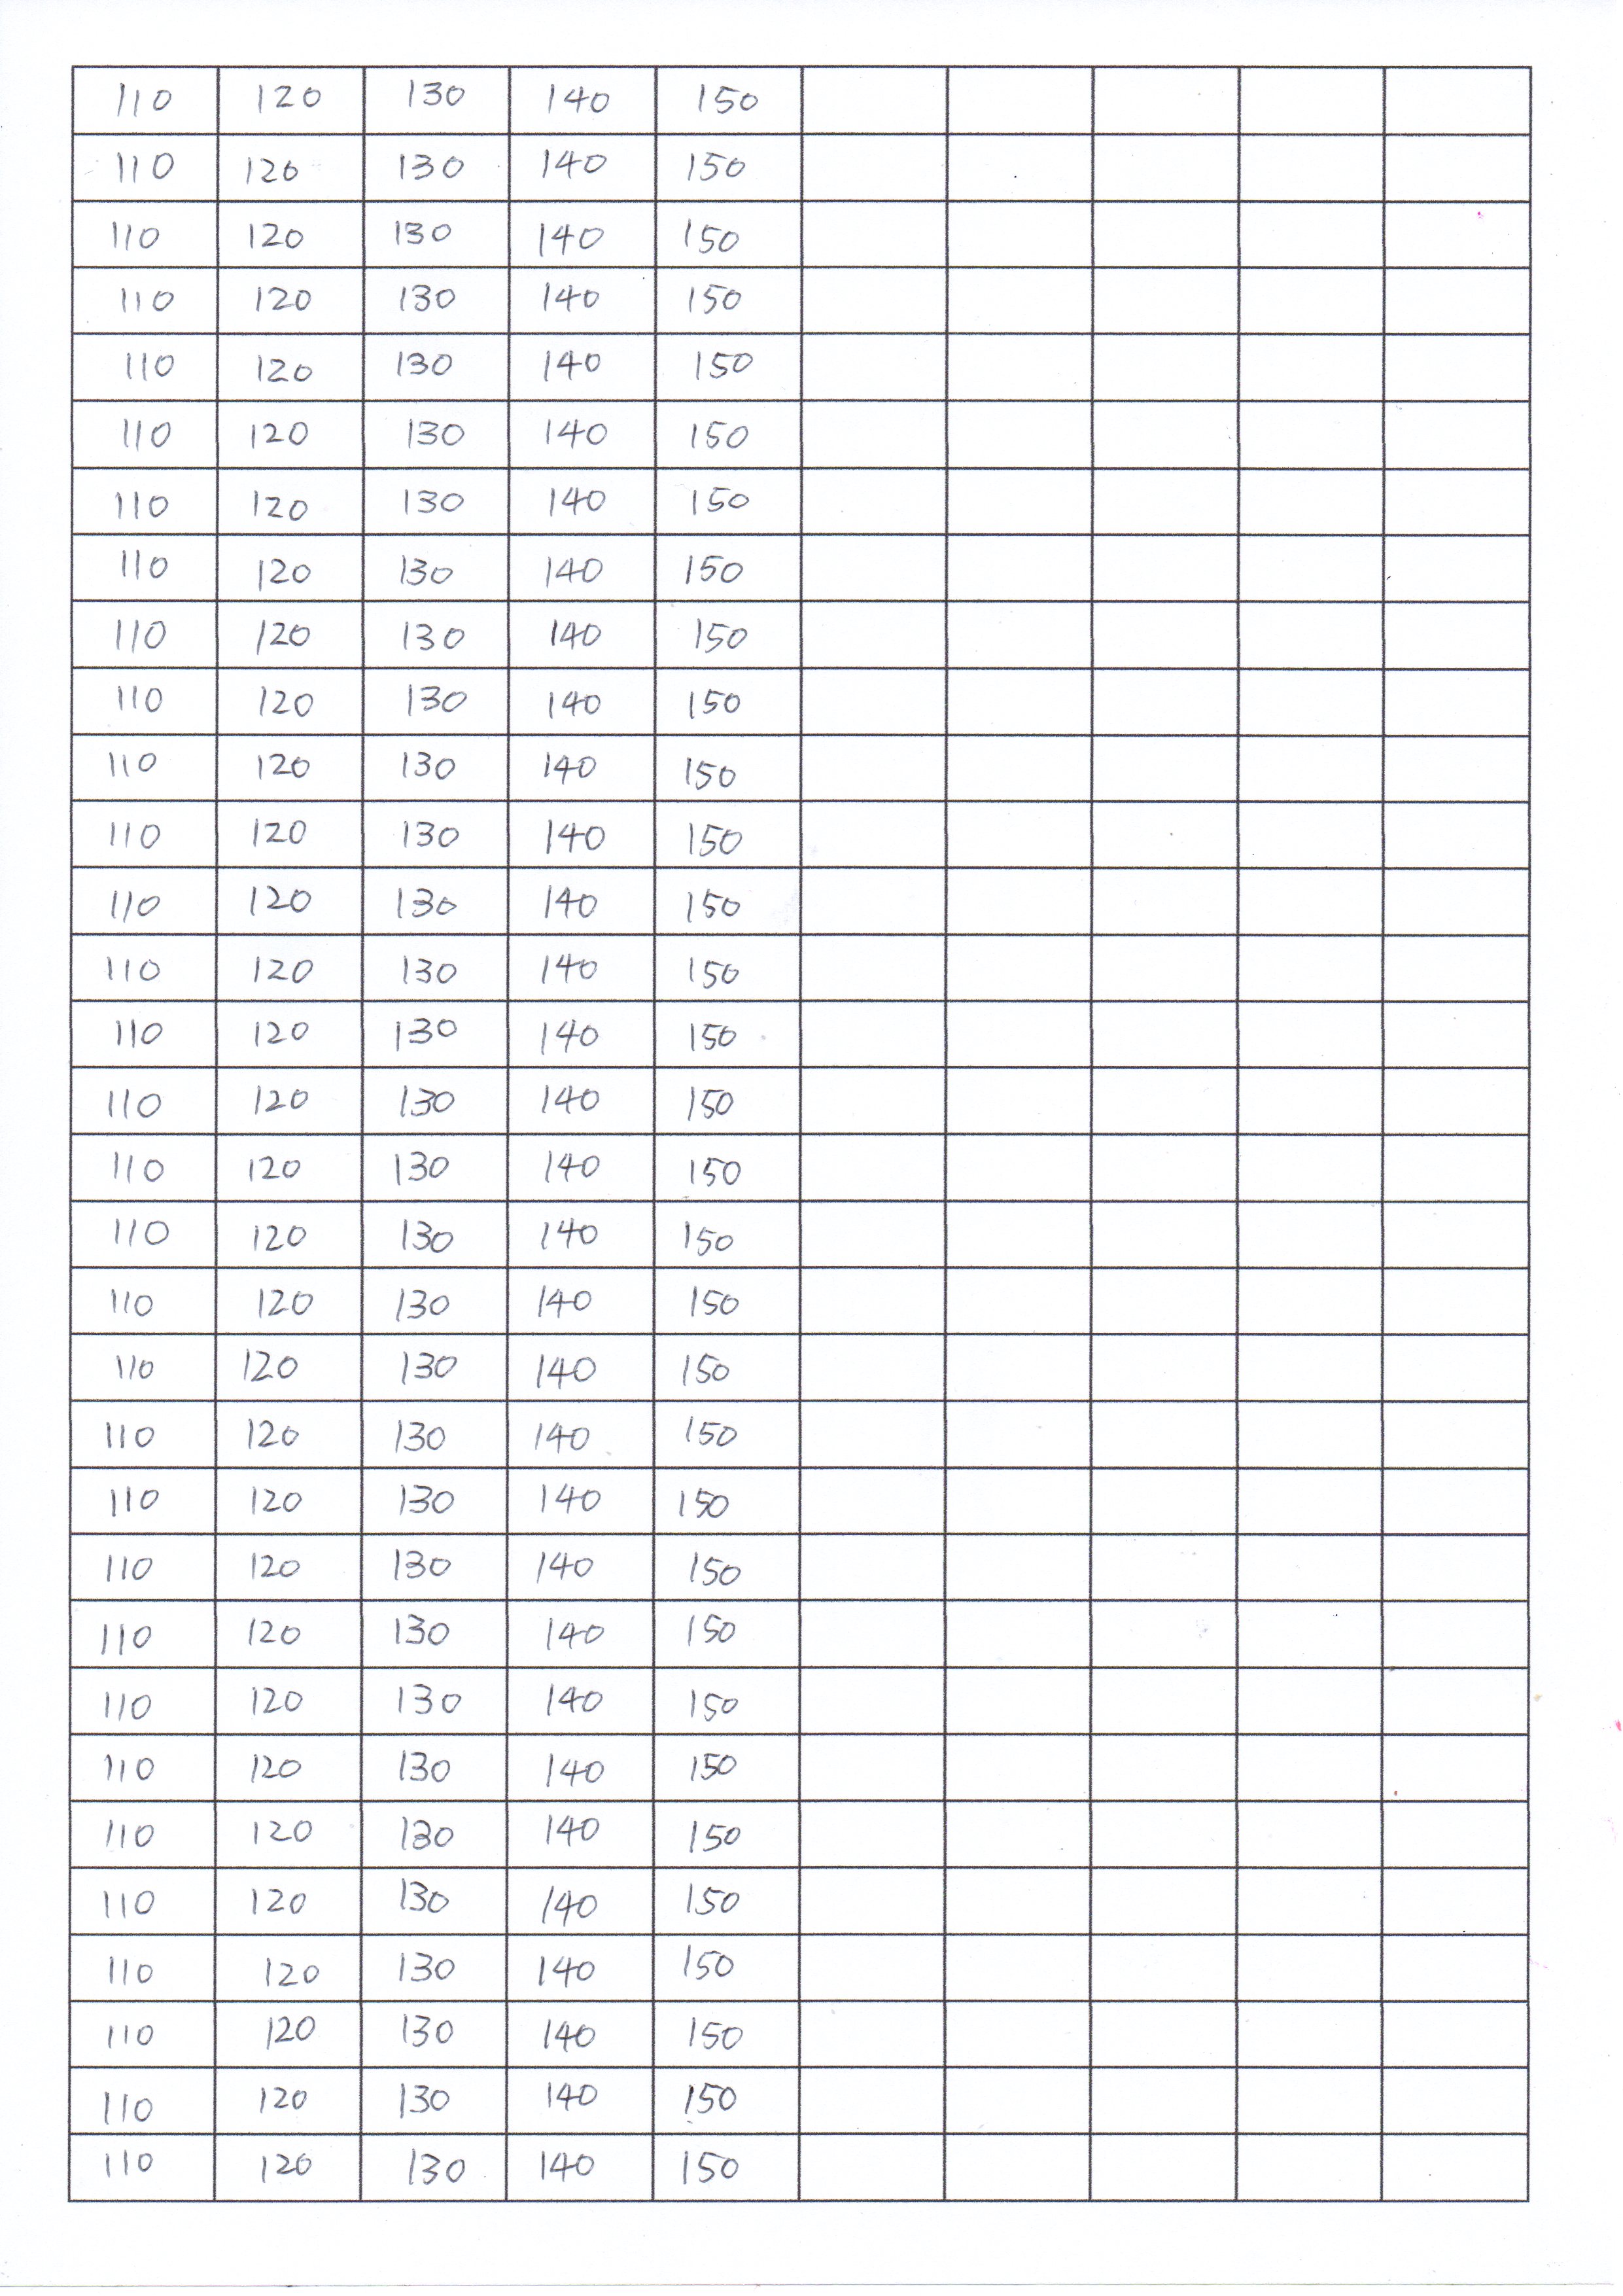 110 120 130 140 150
110 120 130 140 150
110 120 130 140 150
110 120 130 140 150
110 120 130 140 150
110 120 130 140 150
110 120 130 140 150
110 120 130 140 150
110 120 130 140 150
110 120 130 140 150
110 120 130 140 150
110 120 130 140 150
110 120 130 140 150
110 120 130 140 150
110 120 130 140 150
110 120 130 140 150
110 120 130 140 150
110 120 130 140 150
110 120 130 140 150
110 120 130 140 150
110 120 130 140 150
110 120 130 140 150
110 120 130 140 150
110 120 130 140 150
110 120 130 140 150
110 120 130 140 150
110 120 130 140 150
110 120 130 140 150
110 120 130 140 150
110 120 130 140 150
110 120 130 140 150
110 120 130 140 150